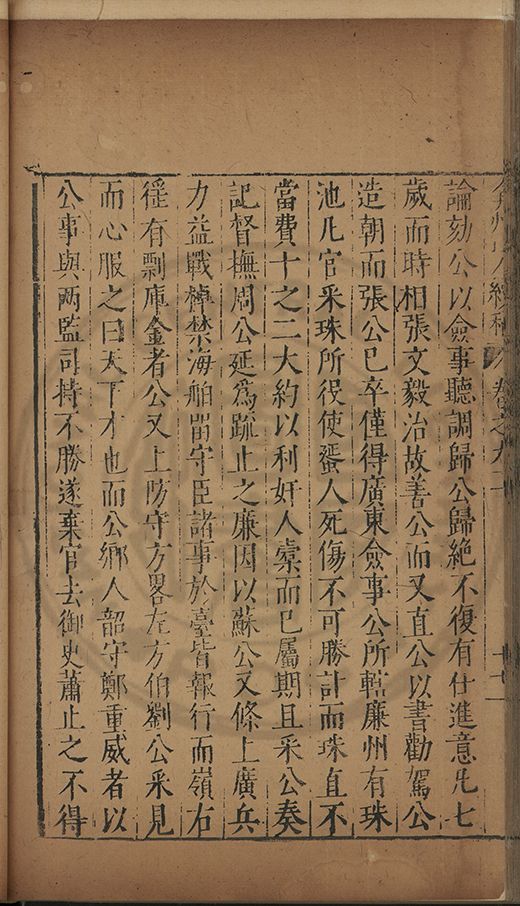 論劾公以僉事聽調歸公歸絕不復有仕進意凡七
歲而時相張文毅治故善公而又直公以書勸駕公
造朝而張公已卒僅得廣東僉事公所轄廉州有珠
池凡官采珠所役使蜑人死傷不可勝計而珠直不
當費十之二大約以利奸人橐而已屬期且采公奏
記督撫周公延爲疏止之廉因以蘇公又條上廣兵
力益戰棹禁海舶留守臣諸事於臺皆報行而嶺右
徑有剽庫金者公又上防守方畧左方伯劉公采見
而心服之曰天下才也而公鄉人韶守鄭重威者以
公事與兩監司持不勝遂棄官去御史蕭止之不得